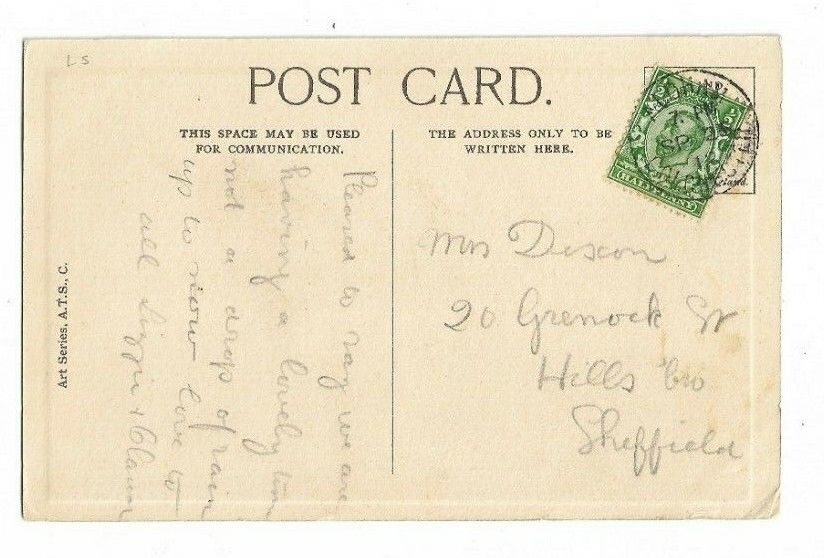 LS
POST CARD.
THIS SPACE MAY BE USED
FOR COMMUNICATION.
THE ADDRESS ONLY TO BE
WRITTEN HERE.
HALFPENNY
Pleased to say we are
having a lovely time
not a drop of rain
up to now love to
all Lizzie +
Mrs Dixon
20 Grenock St
Hills bro
Sheffield
Art Series, A.T.S., C.